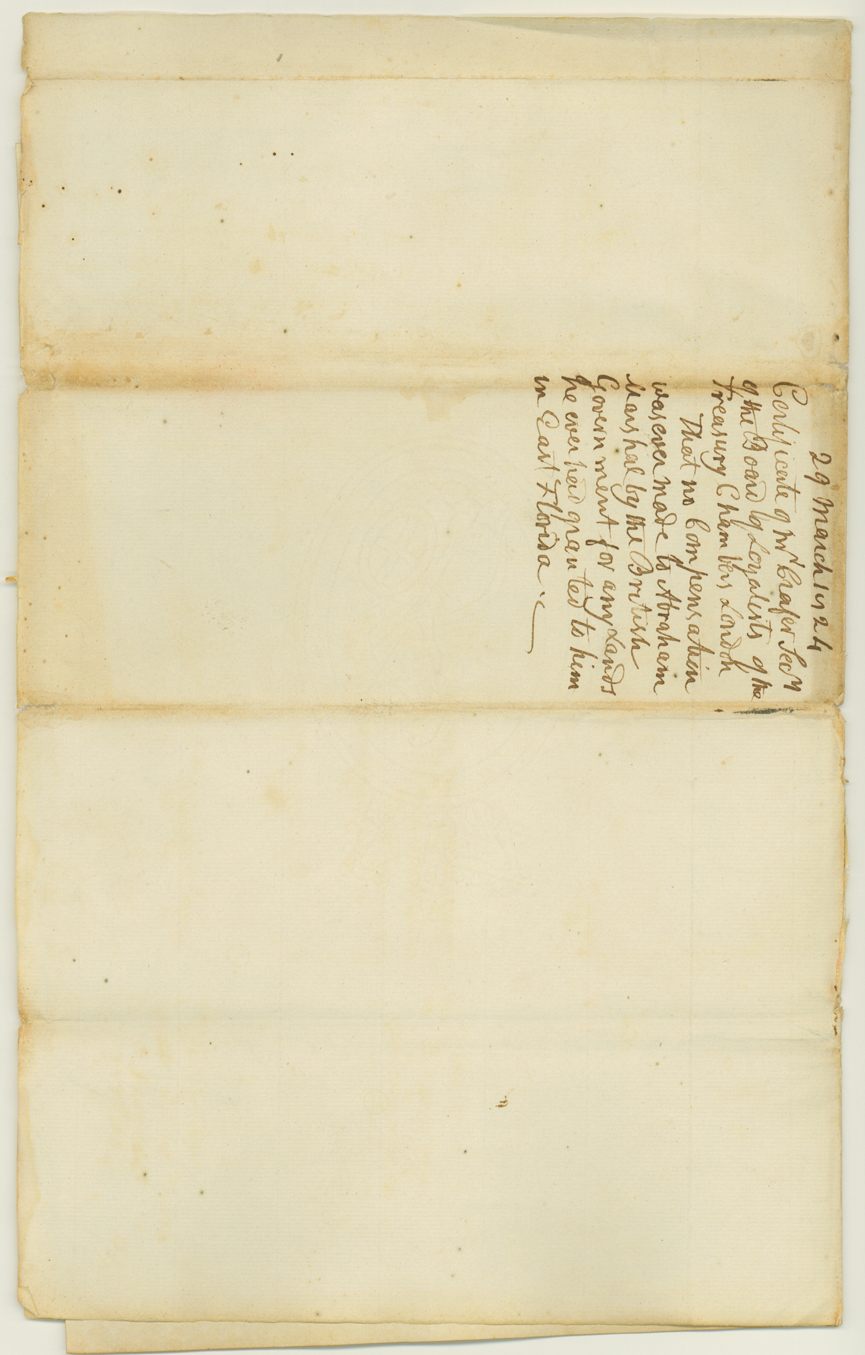 29 March 1824
Certificate of Mr Crafer Secy
of the Board of Loyalists of the
Treasury Chambers London
That no Compensation
was ever made to Abraham
Marshal by the British
Government for any Lands
he ever had granted to him
in East Florida.